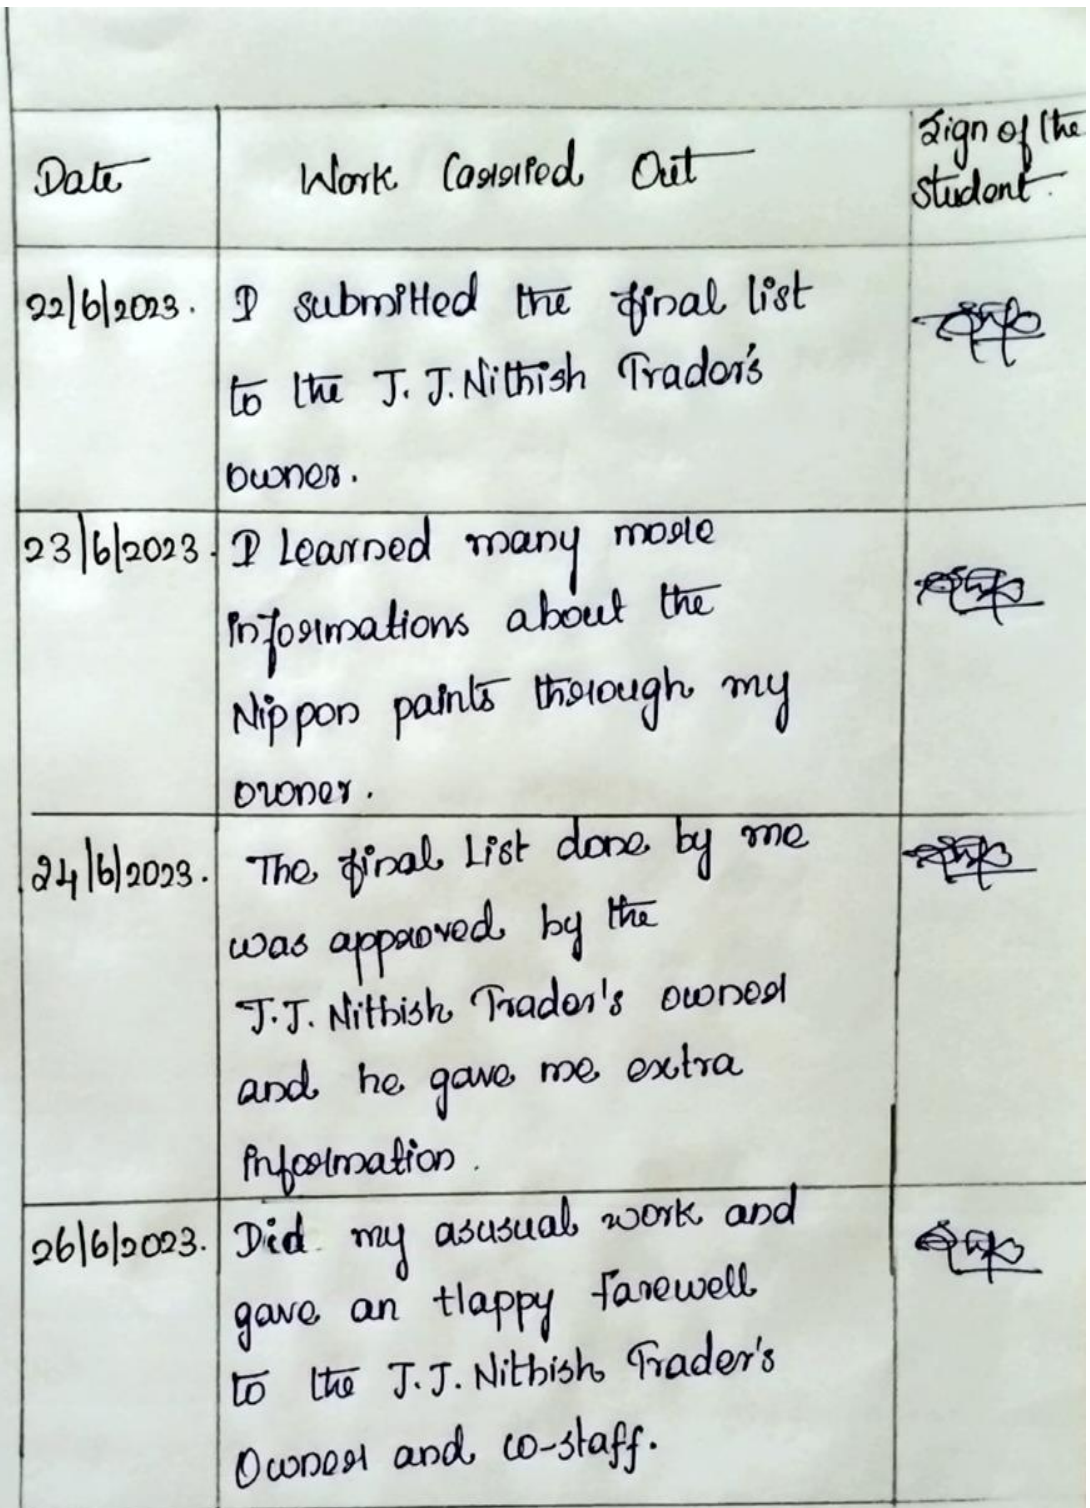 Date
Work Carried Out
Sign of the
Student.
22/6/2023.
I submitted the final list
to the J. J. Nithish Trader's
owner.
23/6/2023.
I Learned many more
informations about the
Nippon paints through my
owner.
24/6/2023.
The final List done by me
was approved by the
J.J. Nithish Trader's owner
and he gave me extra
information.
26/6/2023.
Did my asusual work and
gave an Happy farewell
to the J.J. Nithish Trader's
Owner and co-staff.